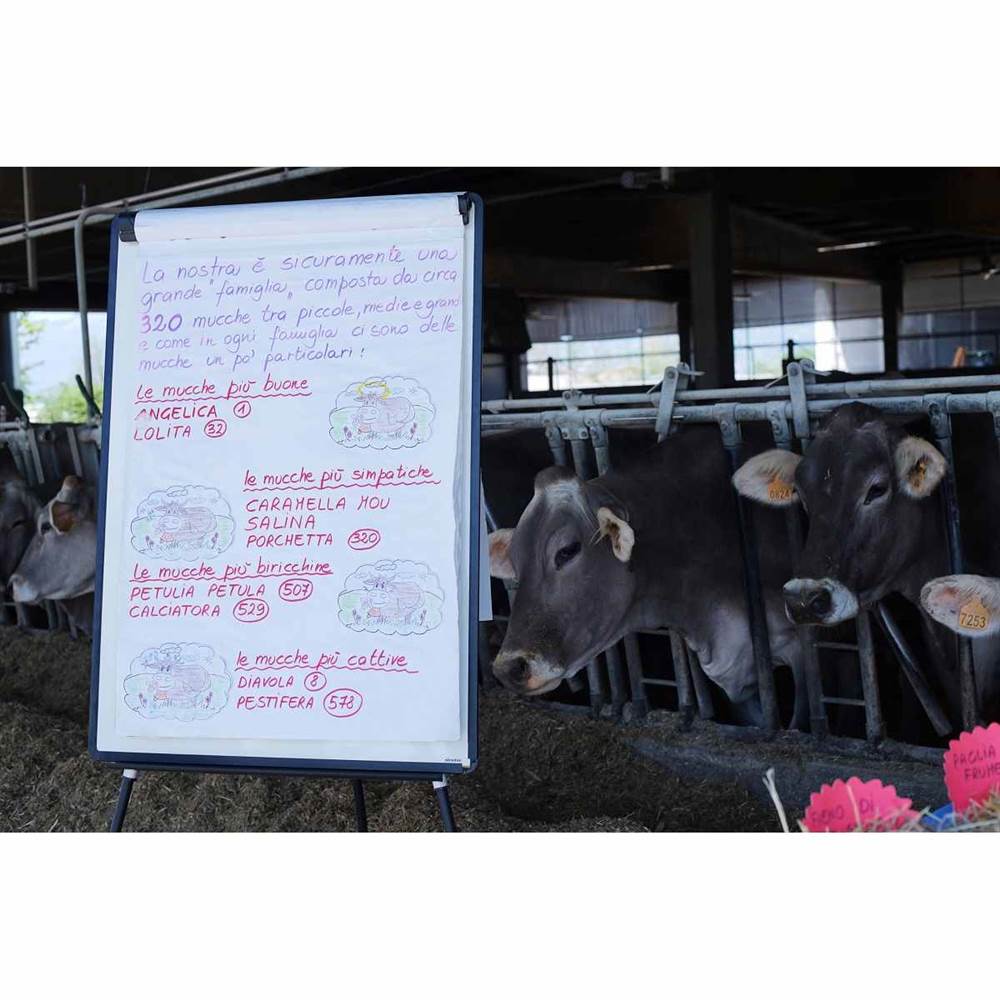 La nostra è sicuramente una
grande "famiglia" composta da circa
320 mucche tra piccole, medie e grandi
e come in ogni famiglia ci sono delle
mucche un po' particolari!
Le mucche più buone
ANGELICA 1
LOLITA 32
le mucche più simpatiche
CARAMELLA MOU
SALINA
PORCHETTA 320
Le mucche più biricchine
PETULIA PETULA 507
CALCIATORA 529
le mucche più cattive
DIAVOLA 8
PESTIFERA 578
0824
7253
PAGLIA
FIENO DI